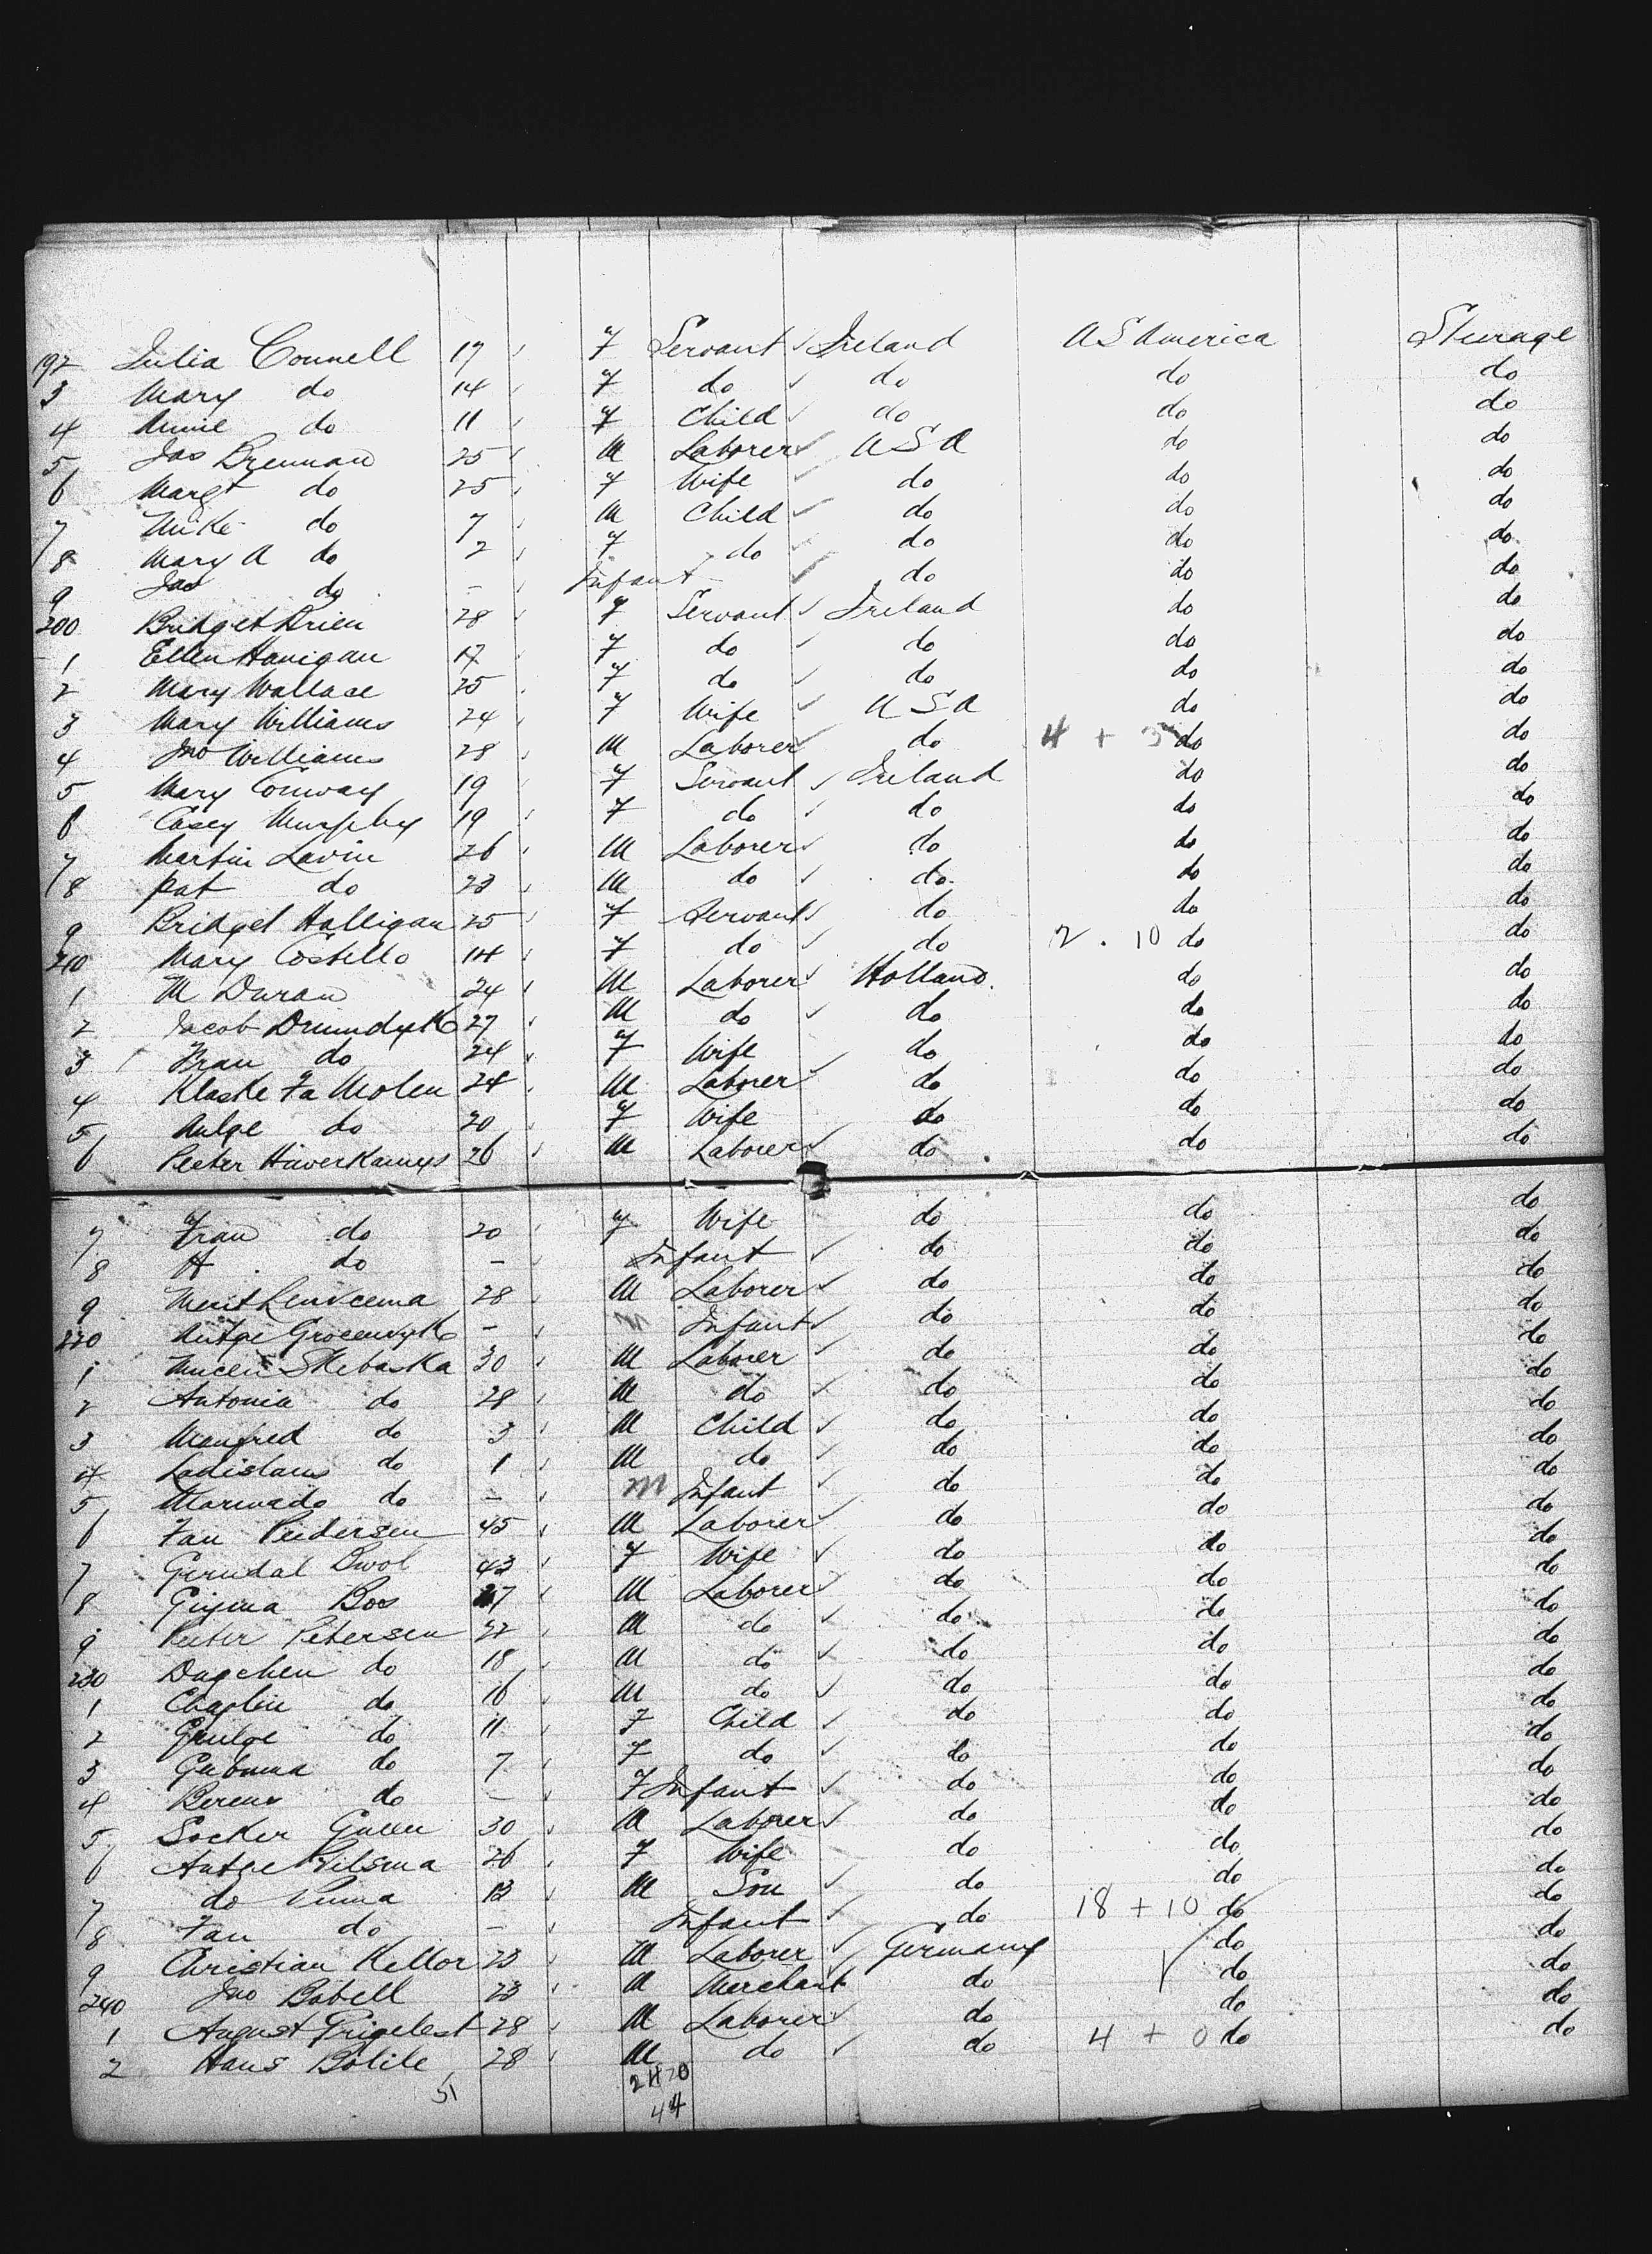 192 Julia Connell 17 F Servant Ireland U S America Steerage
3 Mary do 14 F do do do do
4 Annie do 11 F Child do do do
5 Jas Brennan 25 M Laborer U S A do do
6 Margt do 25 F Wife do do do
7 Mike do 7 M Child do do do
8 Mary A do 2 F do do do do
9 Jas do - Infant do do do
200 Bridget Brien 28 F Servant Ireland do do
1 Ellen Hanigan 17 F do do do do
2 Mary Wallace 25 F do do do do
3 Mary Williams 24 F Wife U S A do do
4 Jno Williams 28 M Laborer do 4 + 5 do do
5 Mary Conway 19 F Servant Ireland do do
6 Casey Murphy 19 F do do do do
7 Martin Lavin 26 M Laborer do do do
8 Pat do 23 M do do do do
9 Bridget Halligan 25 F Servant do do do
210 Mary Costello 14 F do do 2 . 10 do do
1 M Duran 24 M Laborer Holland do do
2 Jacob 27 M do do do do
3 Frau do 24 F Wife do do do
4 Klaske Fa Molen 24 M Laborer do do do
5 do 20 F Wife do do do
6 Peeter Haverkamps 26 M Laborer do do do
7 Frau do 20 F Wife do do do
8 A do - Infant do do do
9 28 M Laborer do do do
220 Antge - M Infant do do do
1 Skebaska 30 M Laborer do do do
2 Antonia do 28 M do do do do
3 Manfred do 3 M Child do do do
4 Ladislaus do 1 M do do do do
5 do - M Infant do do do
6 Fan Peidersen 45 M Laborer do do do
7 43 F Wife do do do
8 Bos 7 M Laborer do do do
9 Peeter Petersen 22 M do do do do
230 Dugchen do 18 M do do do do
1 do 16 M do do do do
2 do 11 F Child do do do
3 do 7 F do do do do
4 do - F Infant do do do
5 Socker 30 M Laborer do do do
6 Antge 26 F Wife do do do
7 do 13 M Son do do do
8 Fan do - Infant do 18 + 10 do do
9 Christian Kellor 23 M Laborer Germany do do
240 Jno Babell 23 M Merchant do do do
1 August 28 M Laborer do do do
2 Hans Bolile 28 M do do 4 + 0 do do
51 24 20
44